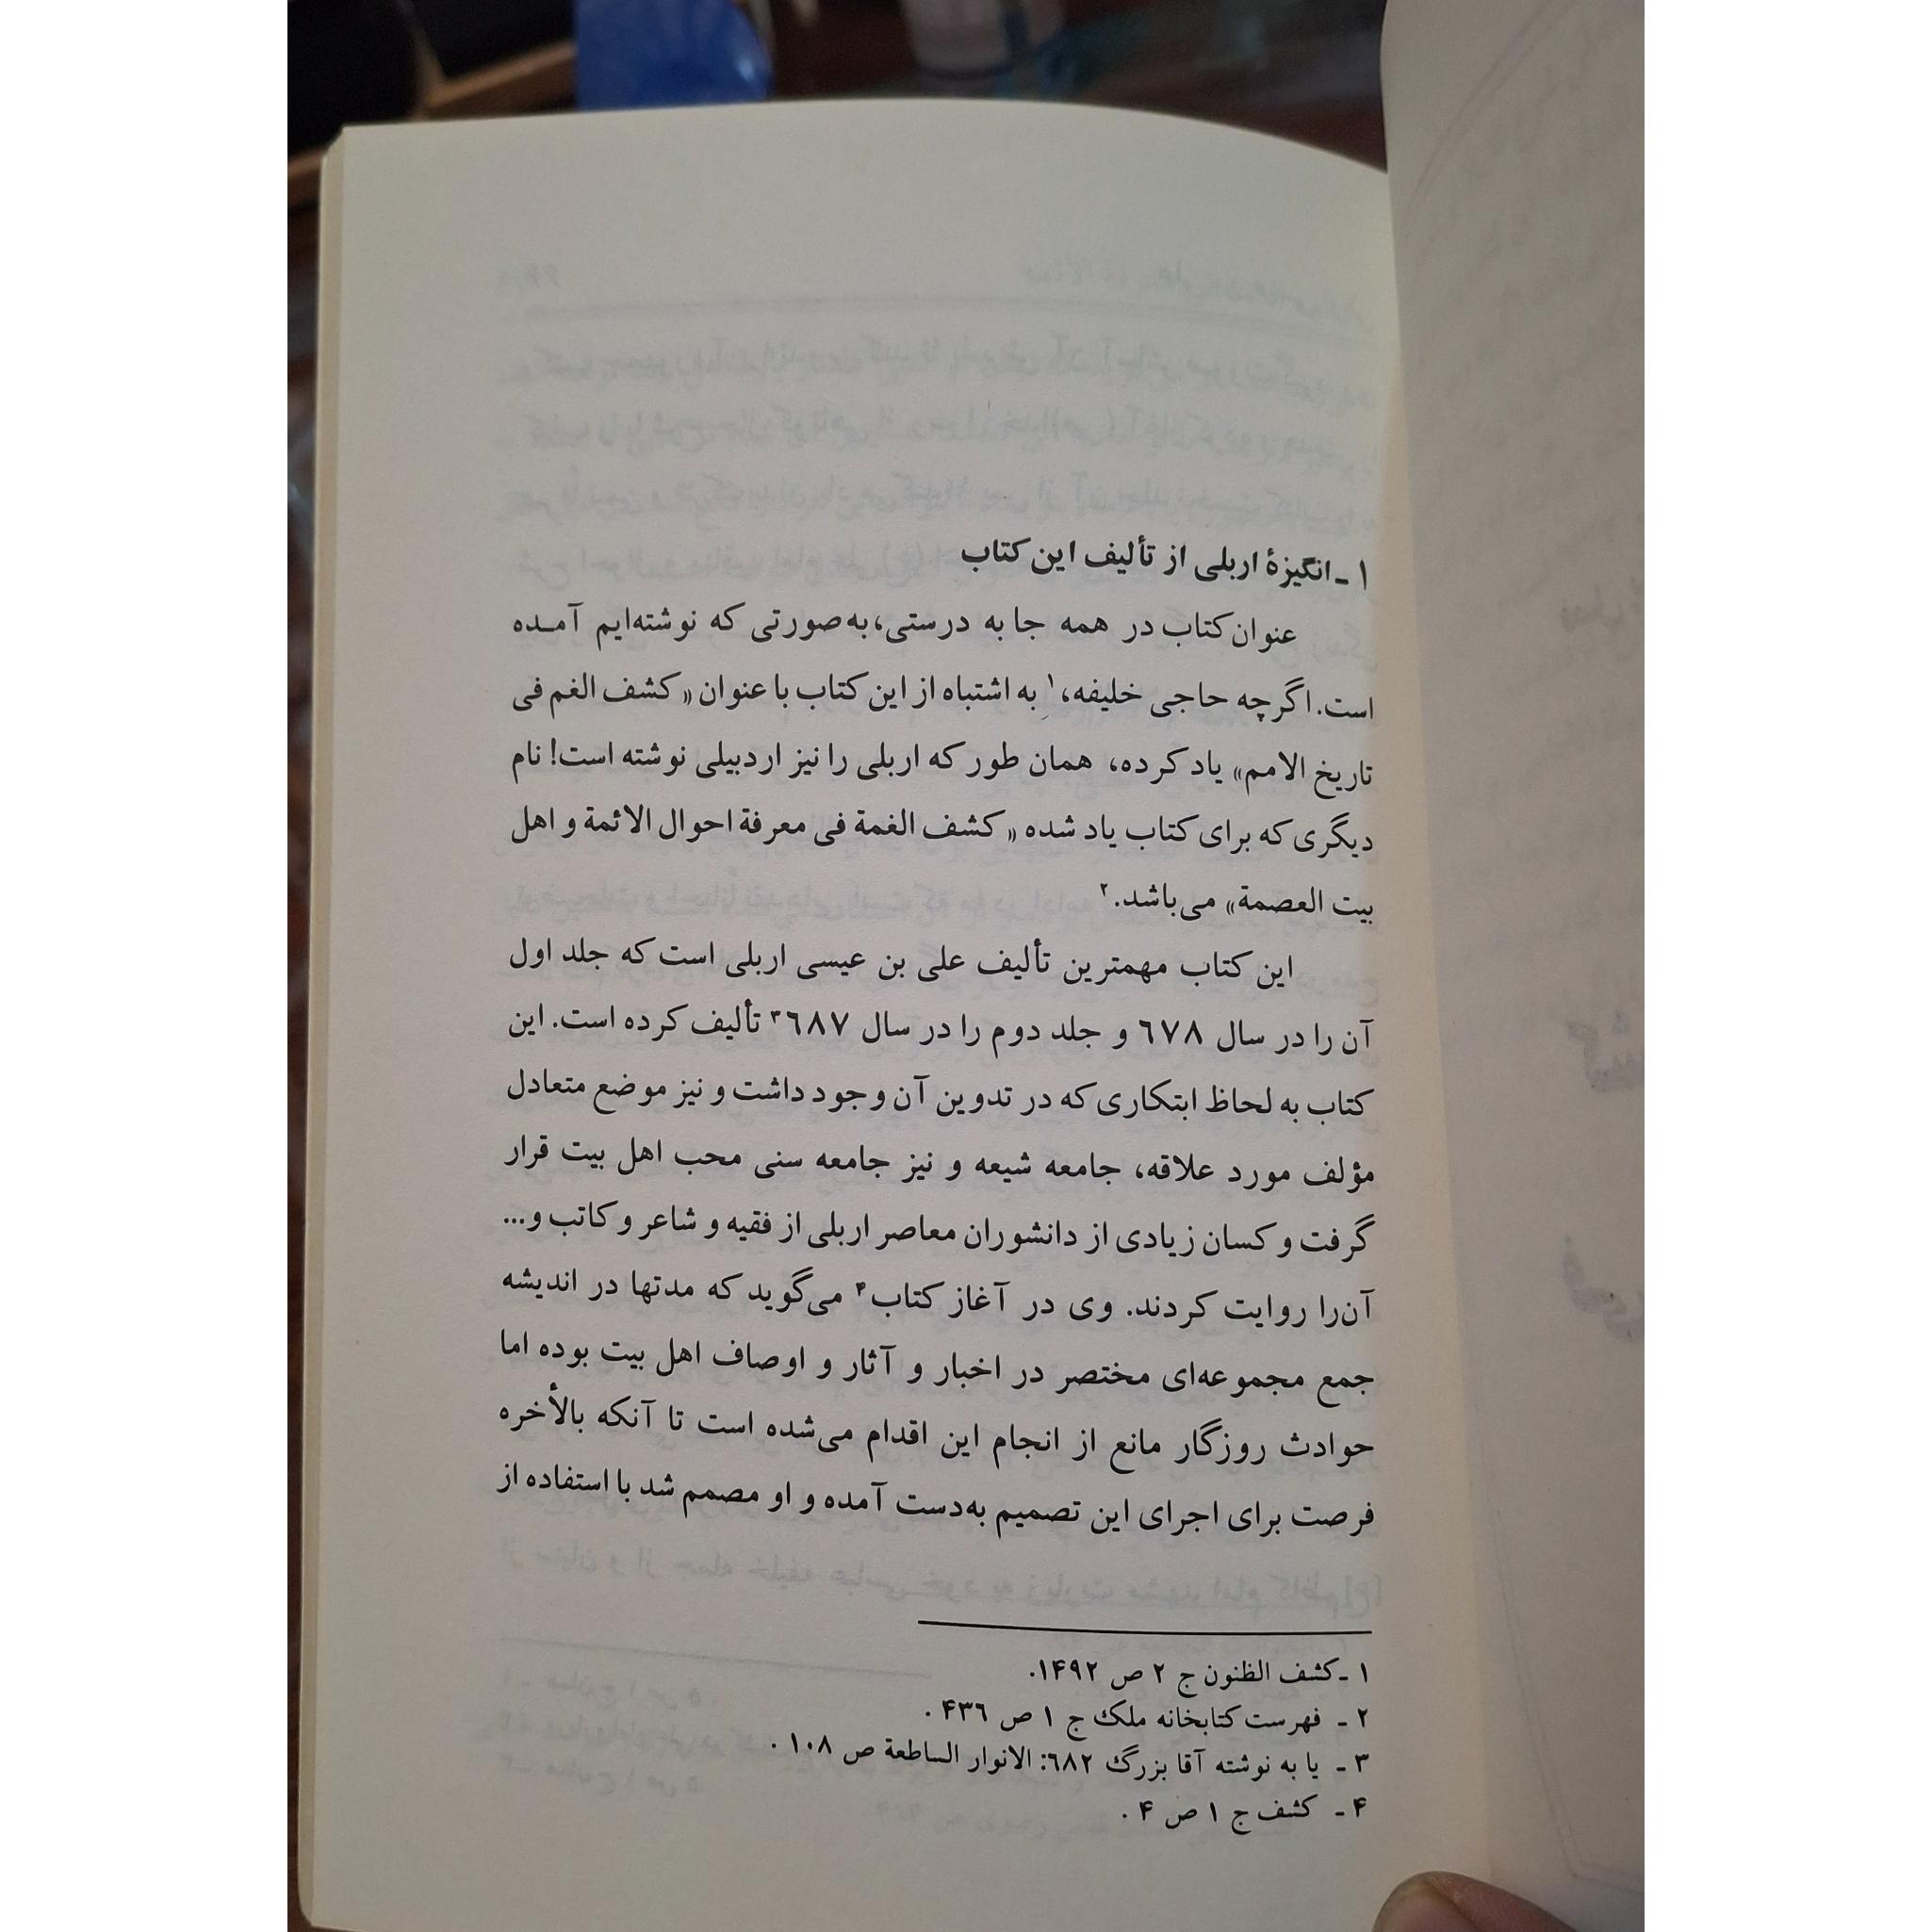 ۱ ـ انگیزهٔ اربلی از تألیف این کتاب
عنوان کتاب در همه جا به درستی، به‌صورتی که نوشته‌ایم آمده
است. اگرچه حاجی خلیفه،۱ به اشتباه از این کتاب با عنوان «کشف الغم فی
تاریخ الامم» یاد کرده، همان طور که اربلی را نیز اردبیلی نوشته است! نام
دیگری که برای کتاب یاد شده «کشف الغمة فی معرفة احوال الائمة و اهل
بیت العصمة» می‌باشد.۲
این کتاب مهمترین تألیف علی بن عیسی اربلی است که جلد اول
آن را در سال ٦٧٨ و جلد دوم را در سال ٦٨٧۳ تألیف کرده است. این
کتاب به لحاظ ابتکاری که در تدوین آن وجود داشت و نیز موضع متعادل
مؤلف مورد علاقه، جامعه شیعه و نیز جامعه سنی محب اهل بیت قرار
گرفت و کسان زیادی از دانشوران معاصر اربلی از فقیه و شاعر و کاتب و...
آن‌را روایت کردند. وی در آغاز کتاب۴ می‌گوید که مدتها در اندیشه
جمع مجموعه‌ای مختصر در اخبار و آثار و اوصاف اهل بیت بوده اما
حوادث روزگار مانع از انجام این اقدام می‌شده است تا آنکه بالأخره
فرصت برای اجرای این تصمیم به‌دست آمده و او مصمم شد با استفاده از
۱ ـ کشف الظنون ج ۲ ص ۱۴۹۲.
۲ ـ فهرست کتابخانه ملک ج ۱ ص ۴۳٦.
۳ ـ یا به نوشته آقا بزرگ ٦٨٢: الانوار الساطعة ص ۱۰۸.
۴ ـ کشف ج ۱ ص ۴.